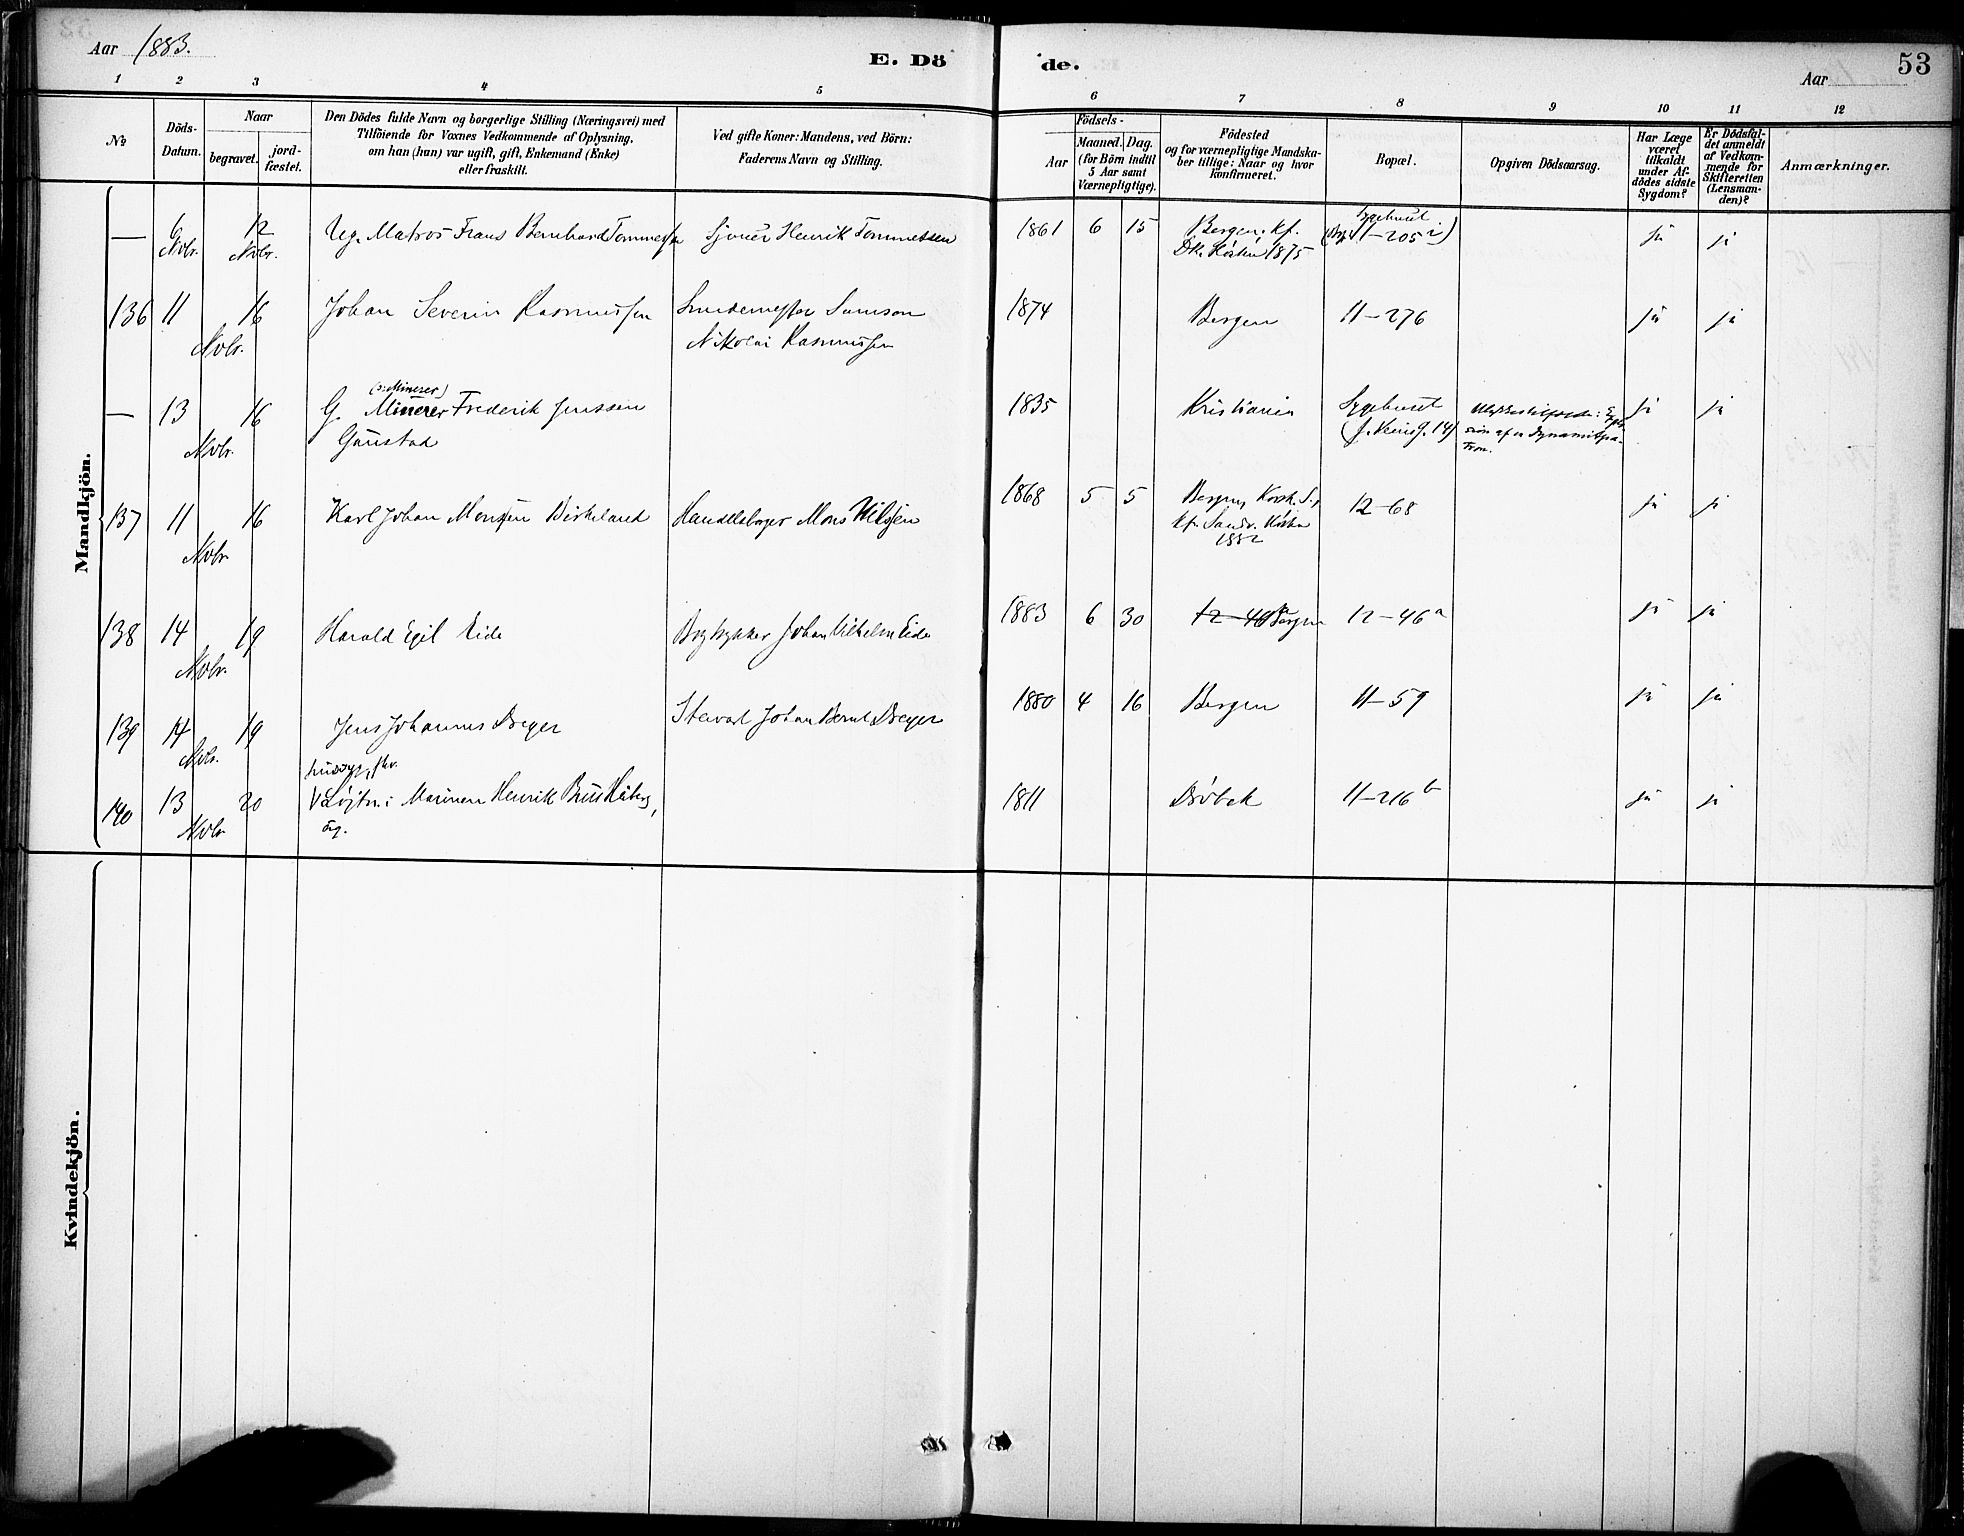 Aar 1883.
E. Döde.
Aar
53
1 2 3 4 5 6 7 8 9 10 11 12
№
Döds-
Datum.
Naar
begravet.
jord-
fæstet.
Den Dödes fulde Navn og borgerlige Stilling (Næringsvei) med
Tilföiende for Voxnes Vedkommende af Oplysning,
om han (hun) var ugift, gift, Enkemand (Enke)
eller fraskilt.
Ved gifte Koner: Mandens, ved Börn:
Faderens Navn og Stilling.
Födsels-
Aar
Maaned. Dag.
(for Börn indtil
5 Aar samt
Værnepligtige).
Födested
og for værnepligtige Mandska-
ber tillige: Naar og hvor
konfirmeret.
Bopæl.
Opgiven Dödsaarsag.
Har Læge
været
tilkaldt
under Af-
dödes sidste
Sygdom?
Er Dödsfal-
det anmeldt
af Vedkom-
mende for
Skifteretten
(Lensman-
den)?
Anmærkninger.
Mandkjön.
— 6 Nvbr. 12 Nvbr. Ug. Matros Frans Bernhard Tommessen
Henrik Tommessen
1861 6 15 Bergen. kf.
Dk. 1875
Sygehuset
11-205
ja ja
136 11 16 Nvbr. Johan Severin Rasmussen
Smedemester Samson
Nikolai Rasmussen
1874 Bergen 11-276 ja ja
— 13 16 Nvbr. (Minerer)
G. Minerer Frederik Jenssen
Gunstad
1835 Kristiania Sygehuset
af en Dynamitpa-
tron.
ja ja
137 11 16 Nvbr. Karl Johan Monsen Birkeland
Mons Nilsen
1868 5 5 Bergen, Korsk. S.,
kf.
1882
12-68 ja ja
138 14 19 Nvbr. Harald Egil Eide
Bogtrykker Johan Vilhelm Eide
1883 6 30 12-46 Bergen 12-46a ja ja
139 14 19 Nvbr. Jens Johannes Dreyer
Stevart Johan Bernt Dreyer
1880 4 16 Bergen 11-59 ja ja
140 13 20 Nvbr.
i Marinen Henrik
1811 Drøbak 11-216b ja ja
Kvindekjön.